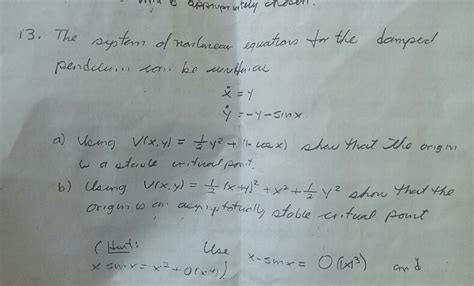 is appropriately chosen.
13. The system of nonlinear equations for the damped
pendulum can be written as
ẋ = y
ẏ = -y - sinx
a) Using V(x,y) = ½y² + (1-cosx) show that the origin
is a stable critical point.
b) Using V(x,y) = ½(x+y)² + x² + ½y² show that the
origin is an asymptotically stable critical point
(Hint: Use x-sinx = O(|x|³) and
x sinx = x² + O(x⁴))